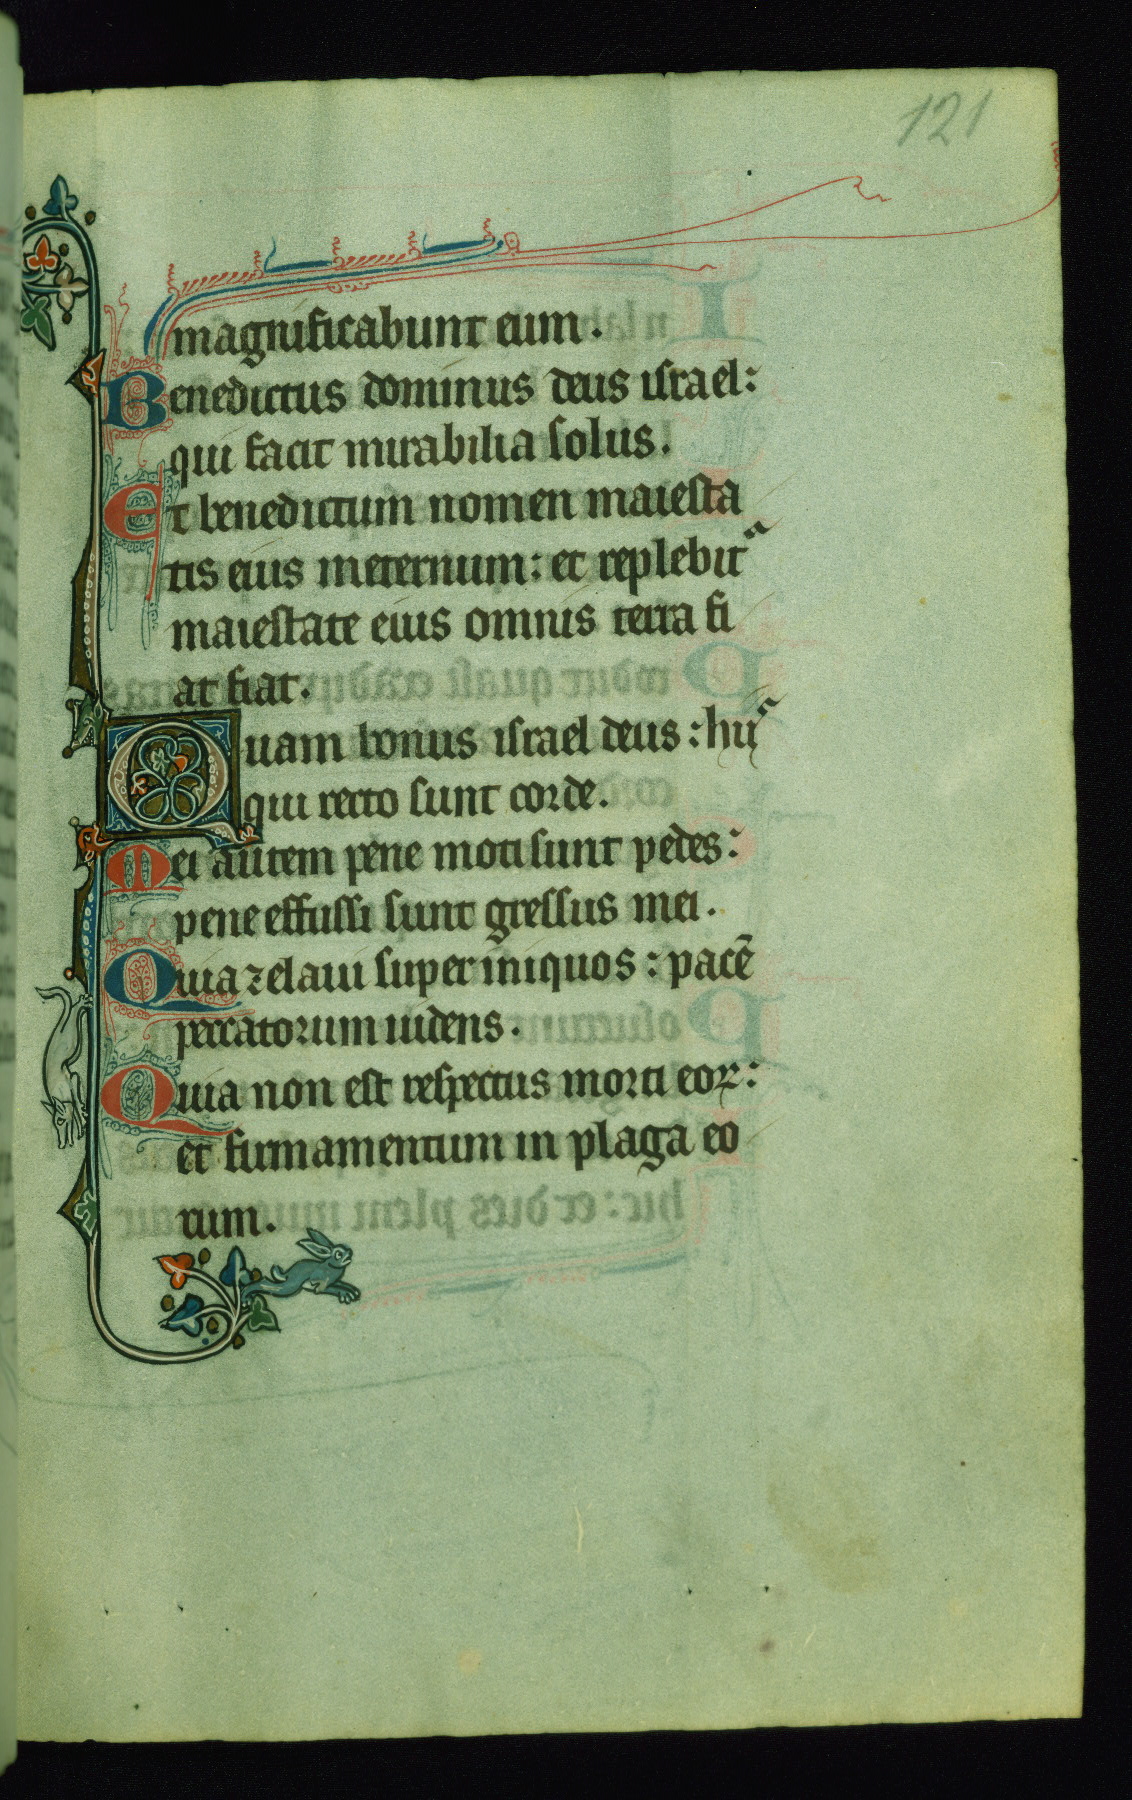 121
magnificabunt eum.
Benedictus dominus deus israel:
qui facit mirabilia solus.
Et benedictum nomen maiesta
tis eius ineternum: et replebit᷑
maiestate eius omnis terra fi
at fiat.
Quam bonus israel deus: hii᷑
qui recto sunt corde.
Mei autem pene moti sunt pedes:
pene effussi sunt gressus mei.
Quia zelaui super iniquos: pacē
peccatorum uidens.
Quia non est respectus morti eoꝝ:
et firmamentum in plaga eo
rum.